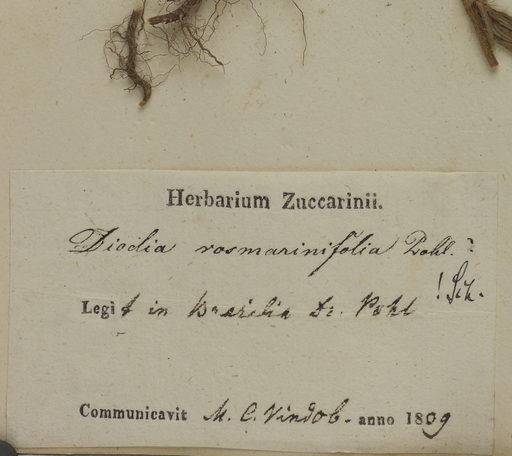 Herbarium Zuccarinii.
Diodia rosmarinifolia Pohl. ?
! Sch.
Legit in Brasilia Dr. Pohl
Communicavit M. C. Vindob. anno 1839